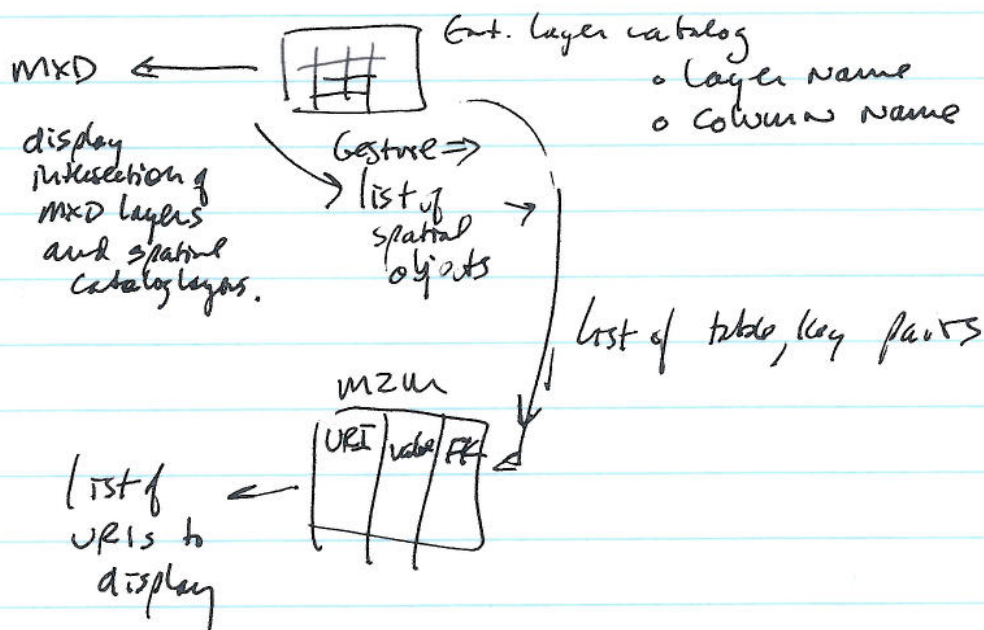 Ent. layer catalog
• Layer Name
• Column Name
MXD
display
intersection of
MXD layers
and spatial
catalog layers.
Gesture ⇒
list of
spatial
objects
list of table, key pairs
M2M
URI value FK
list of
URIs to
display